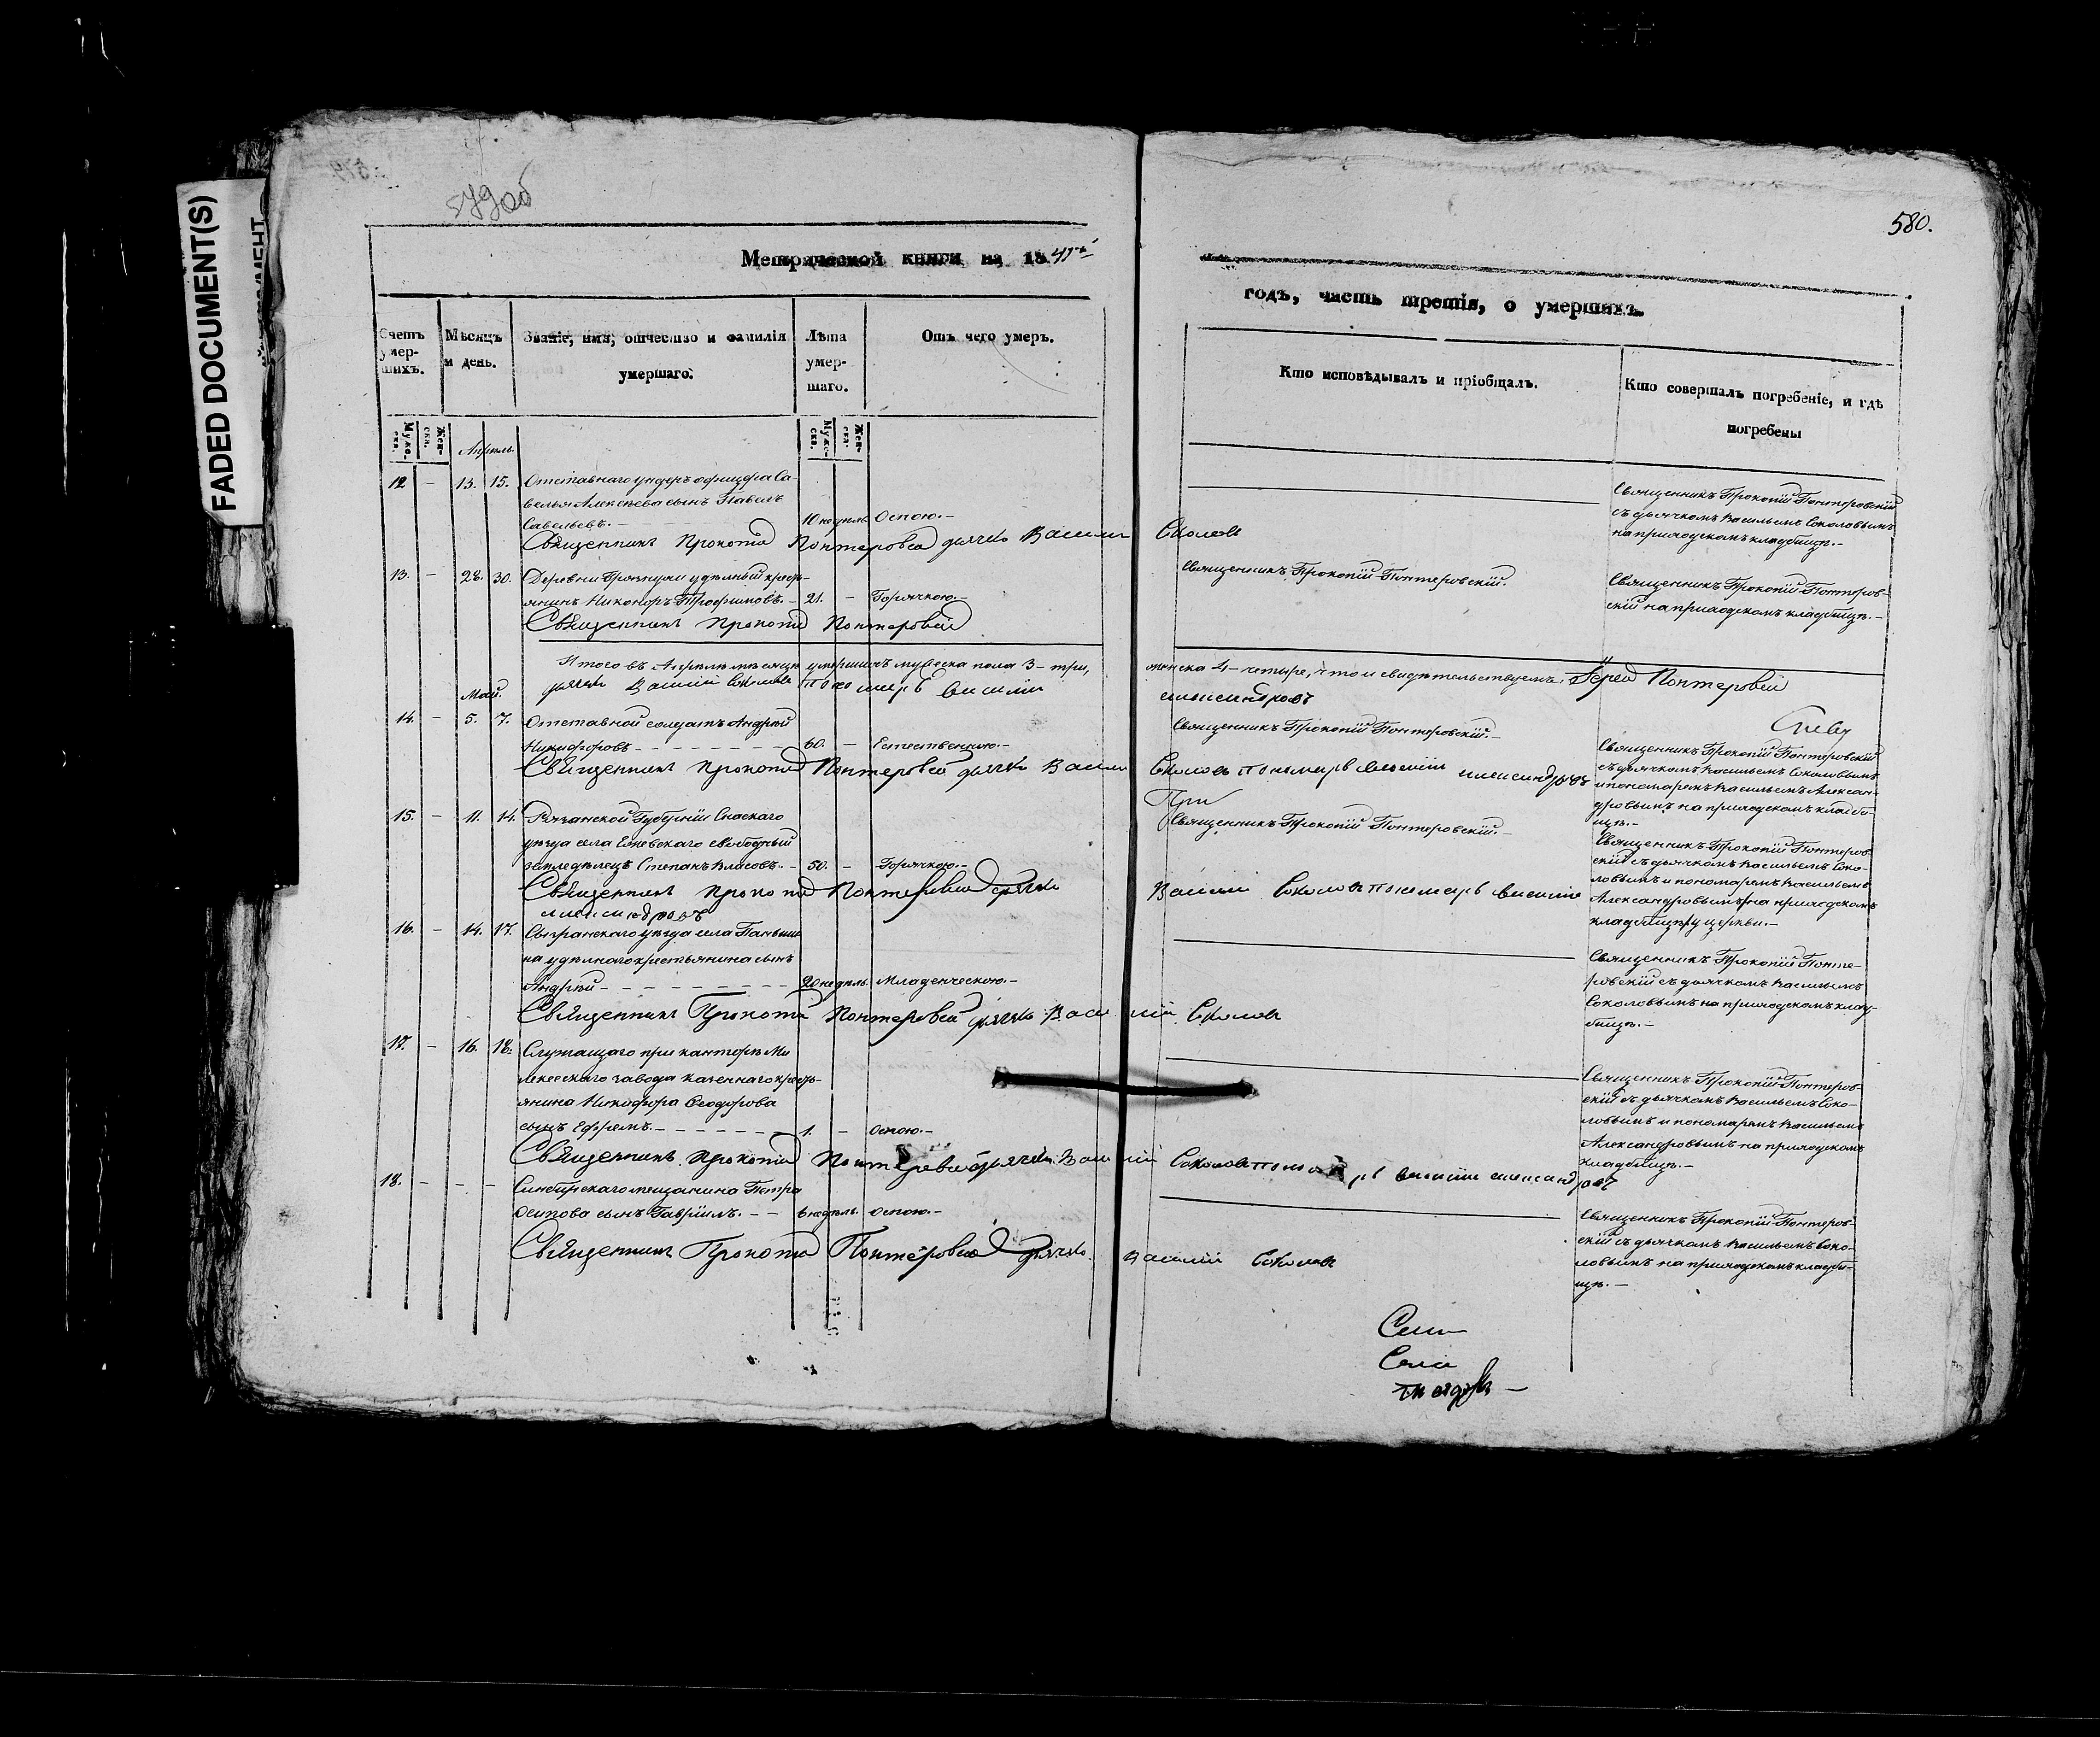 FADED DOCUMENT(S)
579об
580.
Метрической книги на 1841й
годъ, часть третія, о умершихъ.
Счетъ умер-шихъ.
Мѣсяцъ и день.
Званіе, имя, отчество и фамилія умершаго.
Лѣта умер-шаго.
Отъ чего умеръ.
Кто исповѣдывалъ и пріобщалъ.
Кто совершалъ погребеніе, и гдѣ погребены
Муже-ска.
Жен-ска.
Муже-ска.
Жен-ска.
Апрѣль.
12 – 13. 15. Отставнаго ундеръ офицера Са-
велья Алексѣева сынъ Павелъ
Савельевъ.– 10 недѣль Оспою.–
Священникъ Прокопій Понтеровскій
съ дьячкомъ Васильемъ Соколовымъ
на приходскомъ кладбищѣ.–
Священникъ Прокопій Понтеровскій дьячекъ Василій Соколовъ
13. – 28. 30. Деревни удѣльный кресть-
янинъ Никоноръ Трофимовъ.– 21. – Горячкою.–
Священникъ Прокопій Понтеровскій.
Священникъ Прокопій Понтеров-
скій на приходскомъ кладбищѣ.–
Священникъ Прокопій Понтеровскій
Итого въ Апрѣлѣ мѣсяцѣ умершихъ мужеска пола 3–три, женска 4–четыре, что и свидѣтельствуемъ: Іерей Понтеровскій
дьячекъ Василій Соколовъ Пономарь Василій Александровъ
Май.
14. – 5. 7. Отставной солдатъ Андрей
Никифоровъ – – – 60. – Естественною.–
Священникъ Прокопій Понтеровскій.–
Священникъ Прокопій Понтеровскій
съ дьячкомъ Васильемъ Соколовымъ
и пономаремъ Васильемъ Алексан-
дровымъ на приходскомъ кладби-
щѣ.–
Священникъ Прокопій Понтеровскій дьячекъ Василій Соколовъ пономарь Василій Александровъ
15. – 11. 14. Рязанской Губерніи Спаскаго
уѣзда села свободный
земледѣлецъ Степанъ Власовъ.– 50. – Горячкою.–
Священникъ Прокопій Понтеровскій.–
Священникъ Прокопій Понтеров-
скій съ дьячкомъ Васильемъ Соко-
ловымъ и пономаремъ Васильемъ
Александровымъ на приходскомъ
кладбищѣ у церкви.–
Священникъ Прокопій Понтеровскій дьячекъ Василій Соколовъ пономарь Василій
Александровъ
16. – 14. 17. Сызранскаго уѣзда села Паньши-
на удѣльнаго крестьянина сынъ
Андрей – – – 20 недѣль. Младенческою.–
Священникъ Прокопій Понте-
ровскій съ дьячкомъ Васильемъ
Соколовымъ на приходскомъ клад-
бищѣ.–
Священникъ Прокопій Понтеровскій дьячекъ Василій Соколовъ
17. – 16. 18. Служащаго при канторѣ Ме-
лекескаго завода казеннаго кресть-
янина Никифора Ѳеодорова
сынъ Ефремъ.– – – 1. – Оспою.–
Священникъ Прокопій Понтеров-
скій съ дьячкомъ Васильемъ Соко-
ловымъ и пономаремъ Васильемъ
Александровымъ на приходскомъ
кладбищѣ.–
Священникъ Прокопій Понтеровскій дьячекъ Василій Соколовъ пономарь Василій Александровъ
18. – – – Симбирскаго мещанина Петра
Осипова сынъ Гавріилъ.– – 6 недѣль. Оспою.–
Священникъ Прокопій Понтеров-
скій съ дьячкомъ Васильемъ Соко-
ловымъ на приходскомъ кладби-
щѣ.–
Священникъ Прокопій Понтеровскій дьячекъ Василій Соколовъ